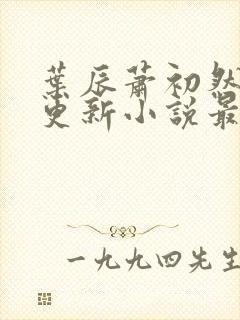 葉辰蕭初然
更新小說最
一九九四先生